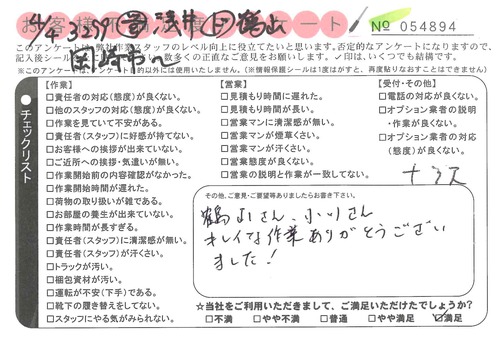 お客様満足度アンケート
4/4 3259 浅井 鶴山
№ 054894
岡崎市へ
このアンケートは、弊社作業スタッフのレベル向上に役立てたいと思います。否定的なアンケートになりますので、
記入後シールを 数多くの正直なご意見をお願いします。✓印は、いくつでも結構です。
※このアンケートは 的以外には使用いたしません。(※情報保護シールは1度はがすと、再度貼りなおすことはできません)
チェックリスト
【作業】
□責任者の対応(態度)が良くない。
□他のスタッフの対応(態度)が良くない。
□作業を見ていて不安がある。
□責任者(スタッフ)に好感が持てない。
□お客様への挨拶が出来ていない。
□ご近所への挨拶・気遣いが無い。
□作業開始前の内容確認がなかった。
□作業開始時間が遅れた。
□荷物の取り扱いが雑である。
□お部屋の養生が出来ていない。
□作業時間が長すぎる。
□責任者(スタッフ)に清潔感が無い。
□責任者(スタッフ)が汗くさい。
□トラックが汚い。
□梱包資材が汚い。
□運転が不安(下手)である。
□靴下の履き替えをしてない。
□スタッフにやる気がみられない。
【営業】
□見積もり時間に遅れた。
□見積もり時間が長い。
□営業マンに清潔感が無い。
□営業マンが煙草くさい。
□営業マンが汗くさい。
□営業態度が良くない。
□営業の説明と作業が一致してない。
【受付・その他】
□電話の対応が良くない。
□オプション業者の説明
・作業が良くない。
□オプション業者の対応
(態度)が良くない。
ナシス
その他、ご意見・ご要望等ありましたらお書き下さい。
鶴山さん、小川さん
キレイな作業ありがとうござい
ました!
☆当社をご利用いただきまして、ご満足いただけたでしょうか?
□不満 □やや不満 □普通 □やや満足 ☑満足